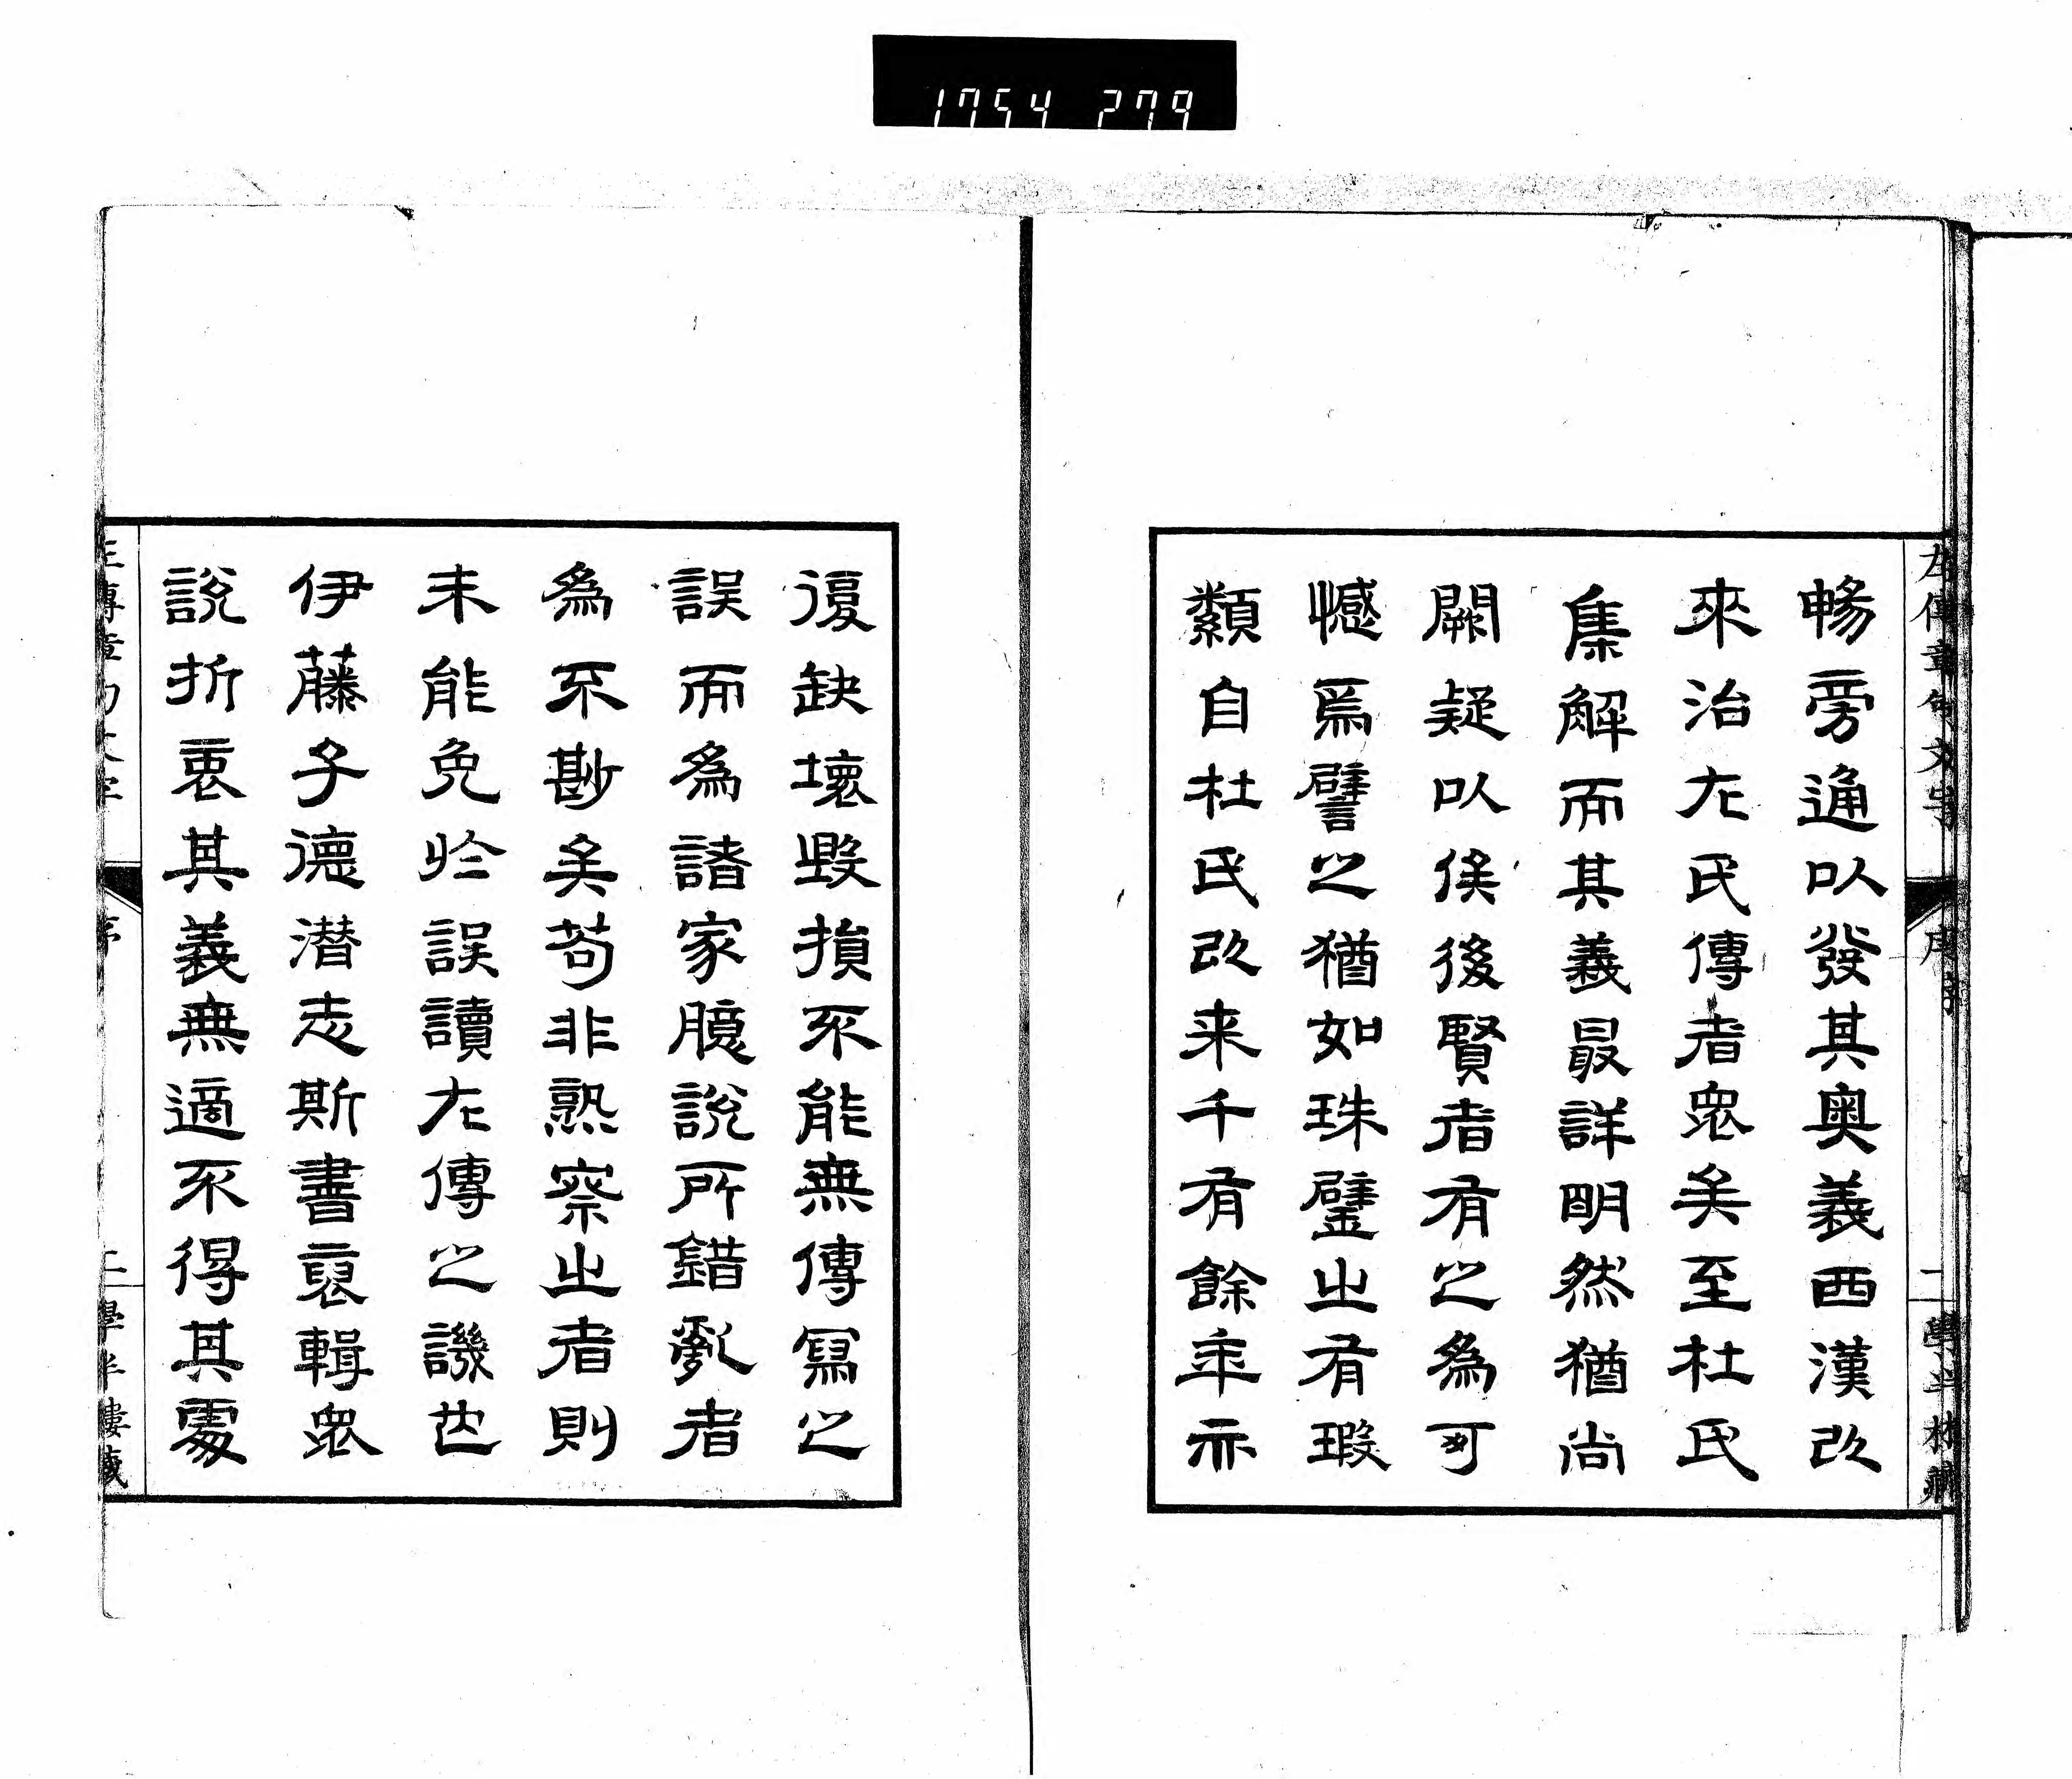 1754 279
左傳章句文字
序
二
學半樓藏
暢旁通以發其奧義西漢以
來治左氏傳者衆矣至杜氏
集解而其義最詳明然猶尚
闕疑以俟後賢者有之為可
憾焉譬之猶如珠璧之有瑕
纇自杜氏以来千有餘年亦
復缺壞毀損不能無傳寫之
誤而為諸家臆說所錯亂者
為不尠矣苟非熟察之者則
未能免於誤讀左傳之譏也
伊藤子德潛志斯書裒輯衆
說折衷其義無適不得其處